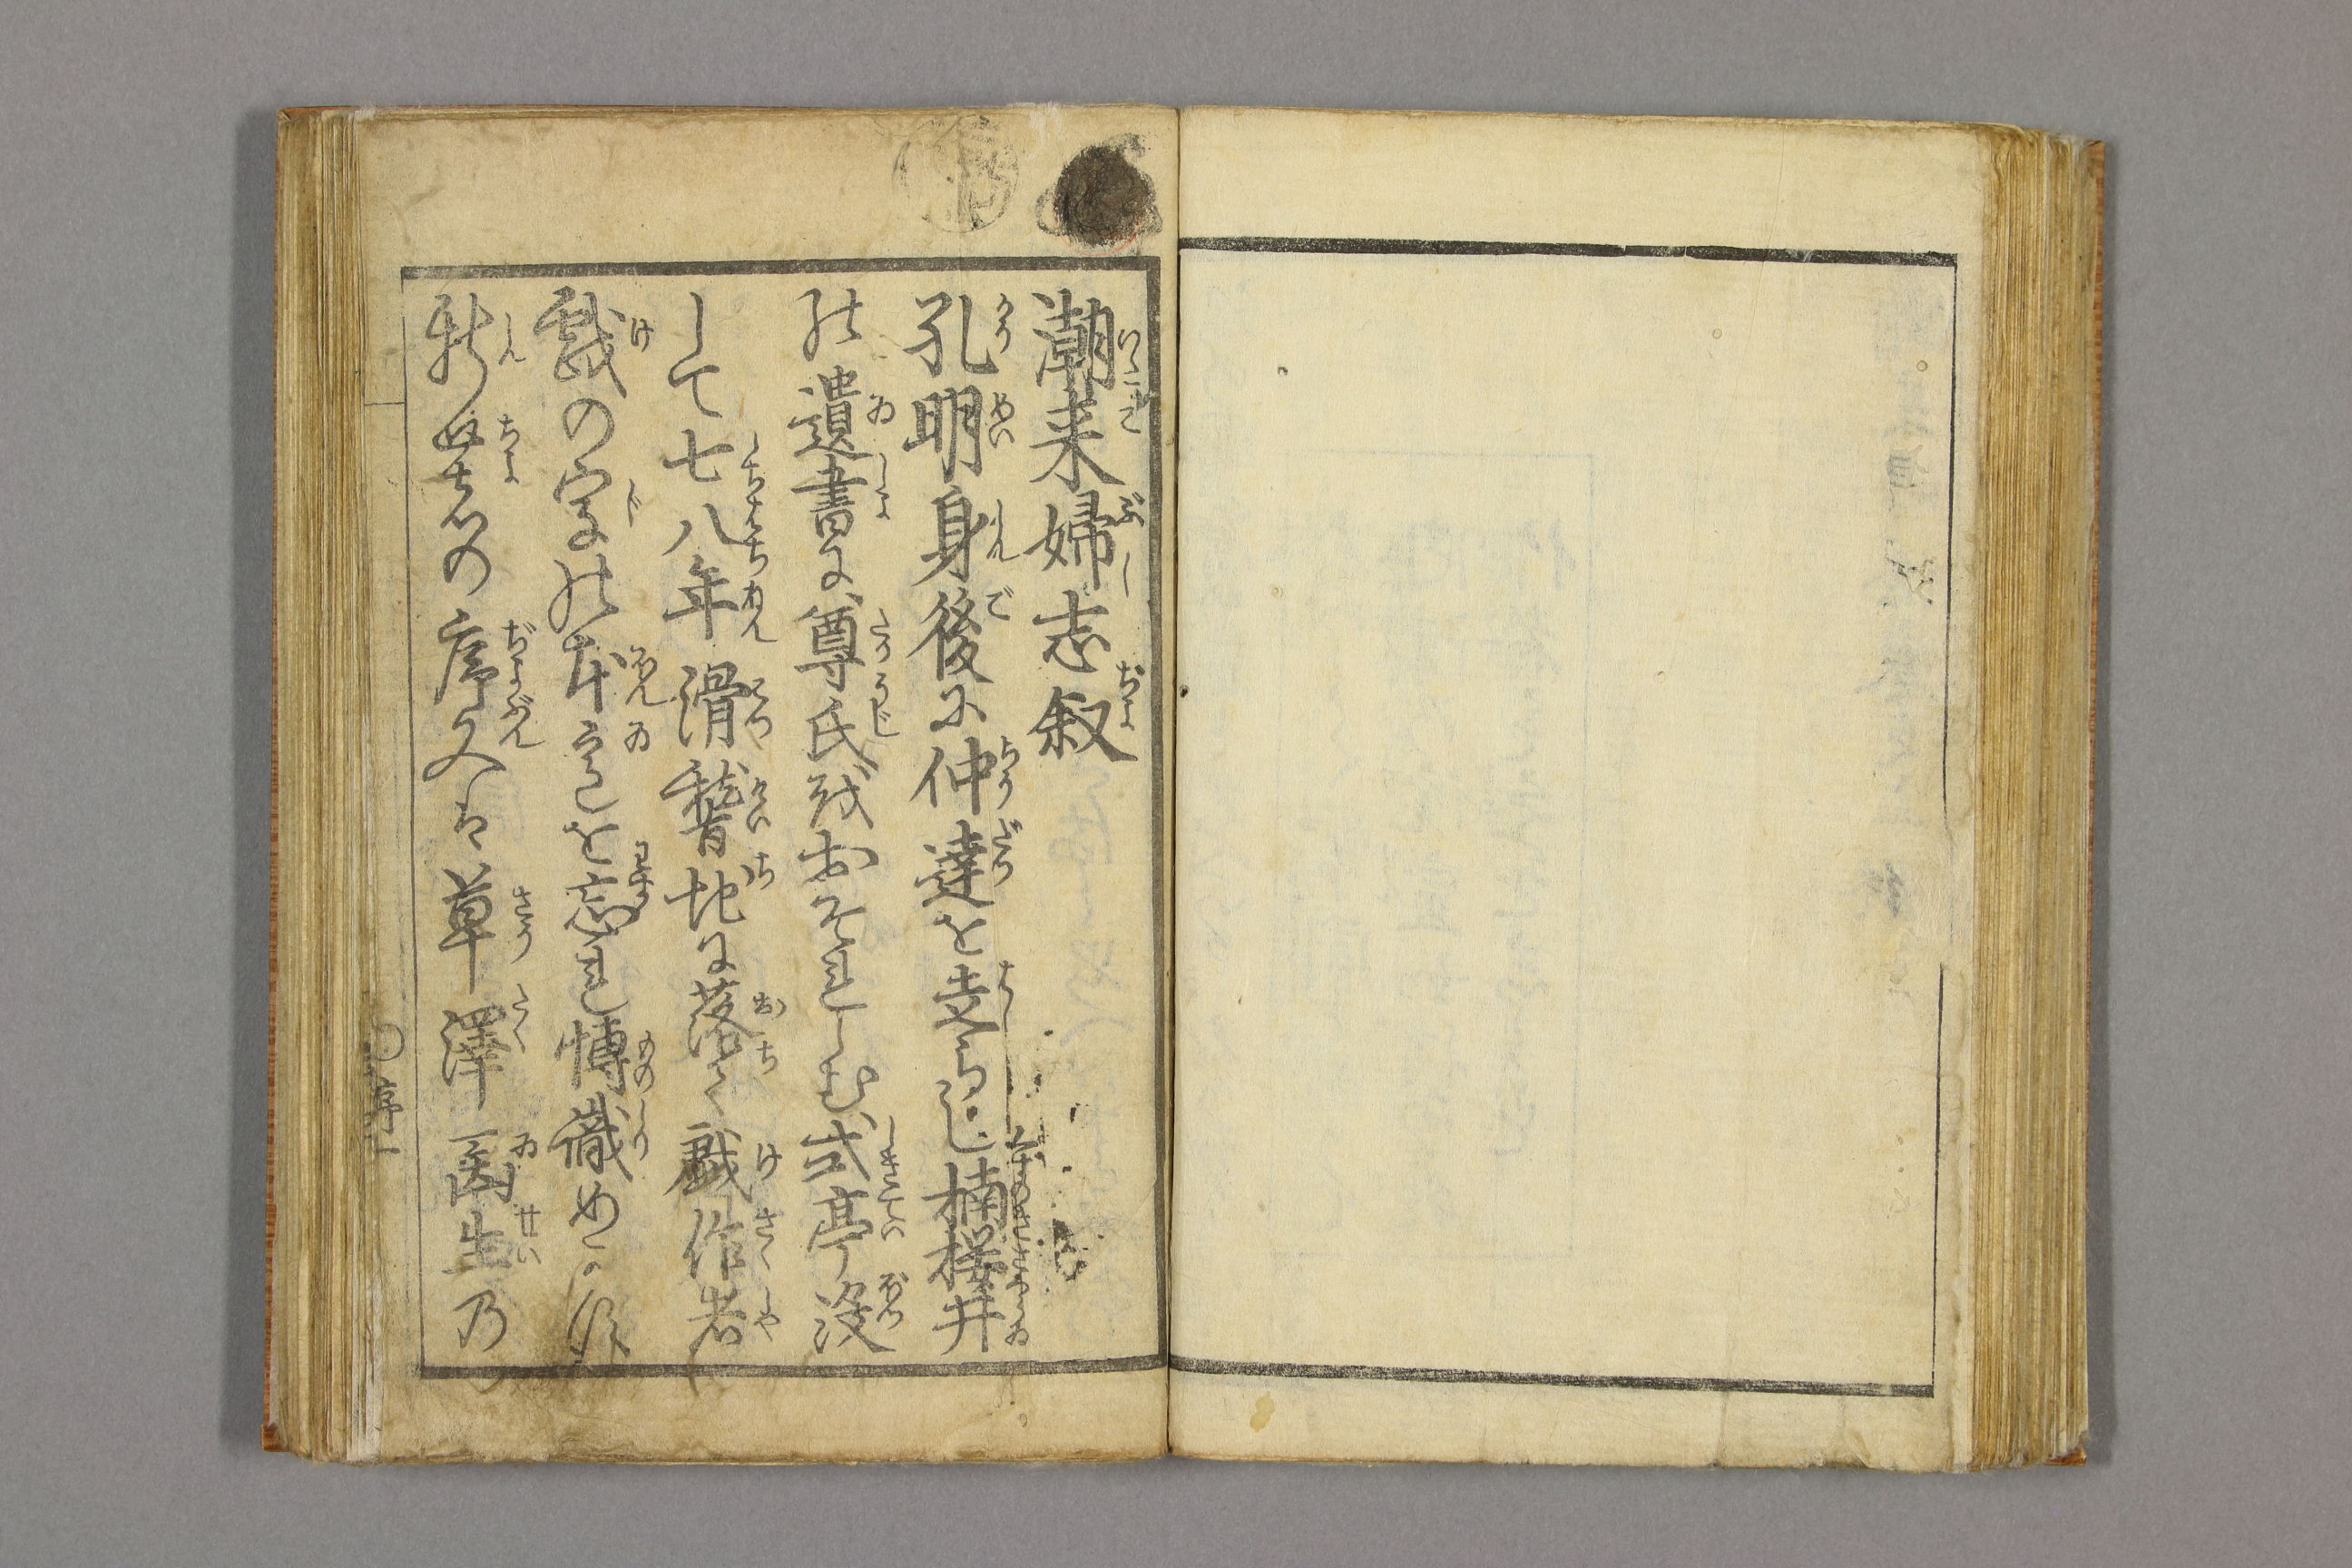 潮来婦志叙
孔明身後に仲達を走らし楠桜井
の遺書に尊氏をおそれしむ式亭没
して七八年滑稽地に落て戯作者
戯の字の本意を忘れ博識めかす
新著の序文は草澤医生乃
序一